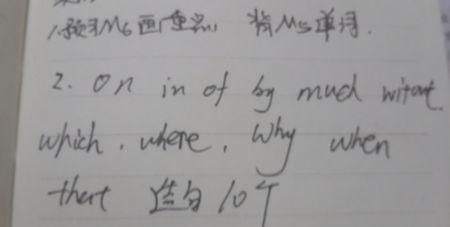 1.预习M6画重点, 背M5单词.
2. On in of by much witout
which, where, Why when
that 造句10个